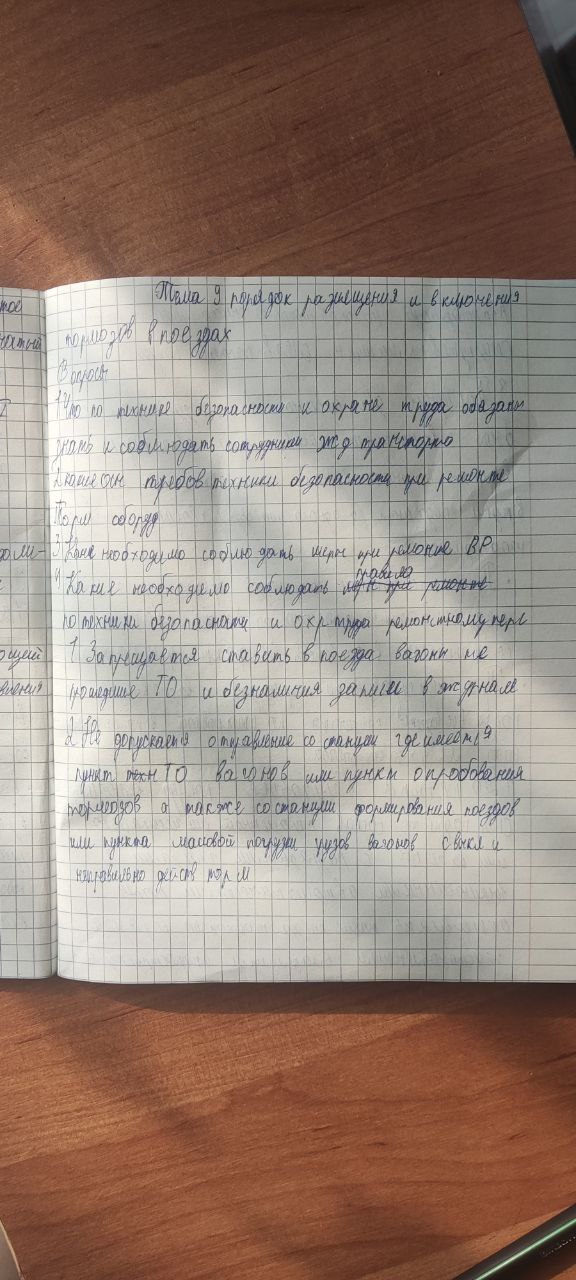 Тема 9 порядок размещения и включения
тормозов в поездах
Вопросы
1 Что по технике безопасности и охране труда обязаны
знать и соблюдать сотрудники жд транспорта
2 какие осн требов техники безопасности при ремонте
Торм оборуд
3 Какие необходимо соблюдать меры при ремонте ВР
4 Какие необходимо соблюдать правила при ремонте
по техники безопасности и охр труда ремонтному перс
1 Запрещается ставить в поезда вагоны не
прошедшие ТО и без записи в журнал
2 Не допускается отправление со станции где имеется
пункт техн ТО вагонов или пункт опробования
тормозов а также со станции формирования поездов
или пункта массовой погрузки грузов вагонов с выкл и
неправильно действ торм
ное
доли-
ющей